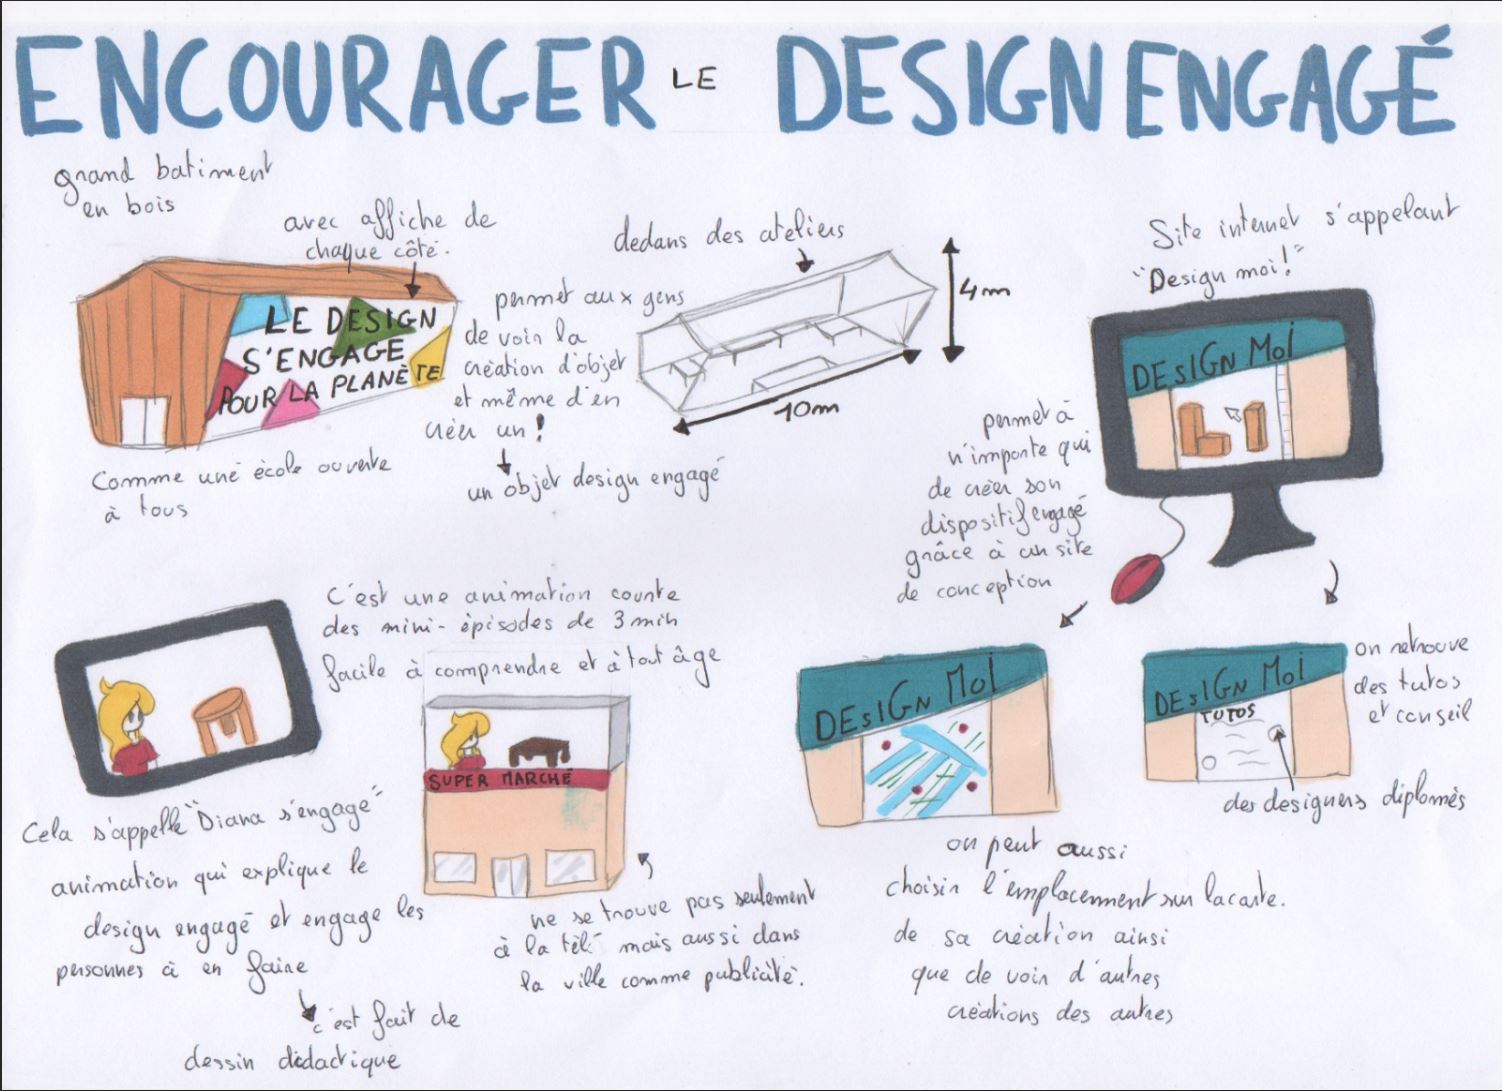 ENCOURAGER LE DESIGN ENGAGÉ
grand batiment
en bois
avec affiche de
chaque côté.
LE DESIGN
S'ENGAGE
POUR LA PLANÈTE
Comme une école ouverte
à tous
permet aux gens
de voir la
création d'objet
et même d'en
créer un!
un objet design engagé
dedans des ateliers
4m
10m
Site internet s'appelant
"Design moi!"
DESIGN MOI
permet à
n'importe qui
de créer son
dispositif engagé
grâce à un site
de conception
C'est une animation courte
des mini-épisodes de 3 min
facile à comprendre et à tout âge
Cela s'appelle "Diana s'engage"
animation qui explique le
design engagé et engage les
personnes à en faire
c'est fait de
dessin didactique
SUPER MARCHÉ
ne se trouve pas seulement
à la télé mais aussi dans
la ville comme publicité.
DESIGN MOI
on peut aussi
choisir l'emplacement sur la carte.
de sa création ainsi
que de voir d'autres
créations des autres
DESIGN MOI
TUTOS
on retrouve
des tutos
et conseil
des designers diplomés